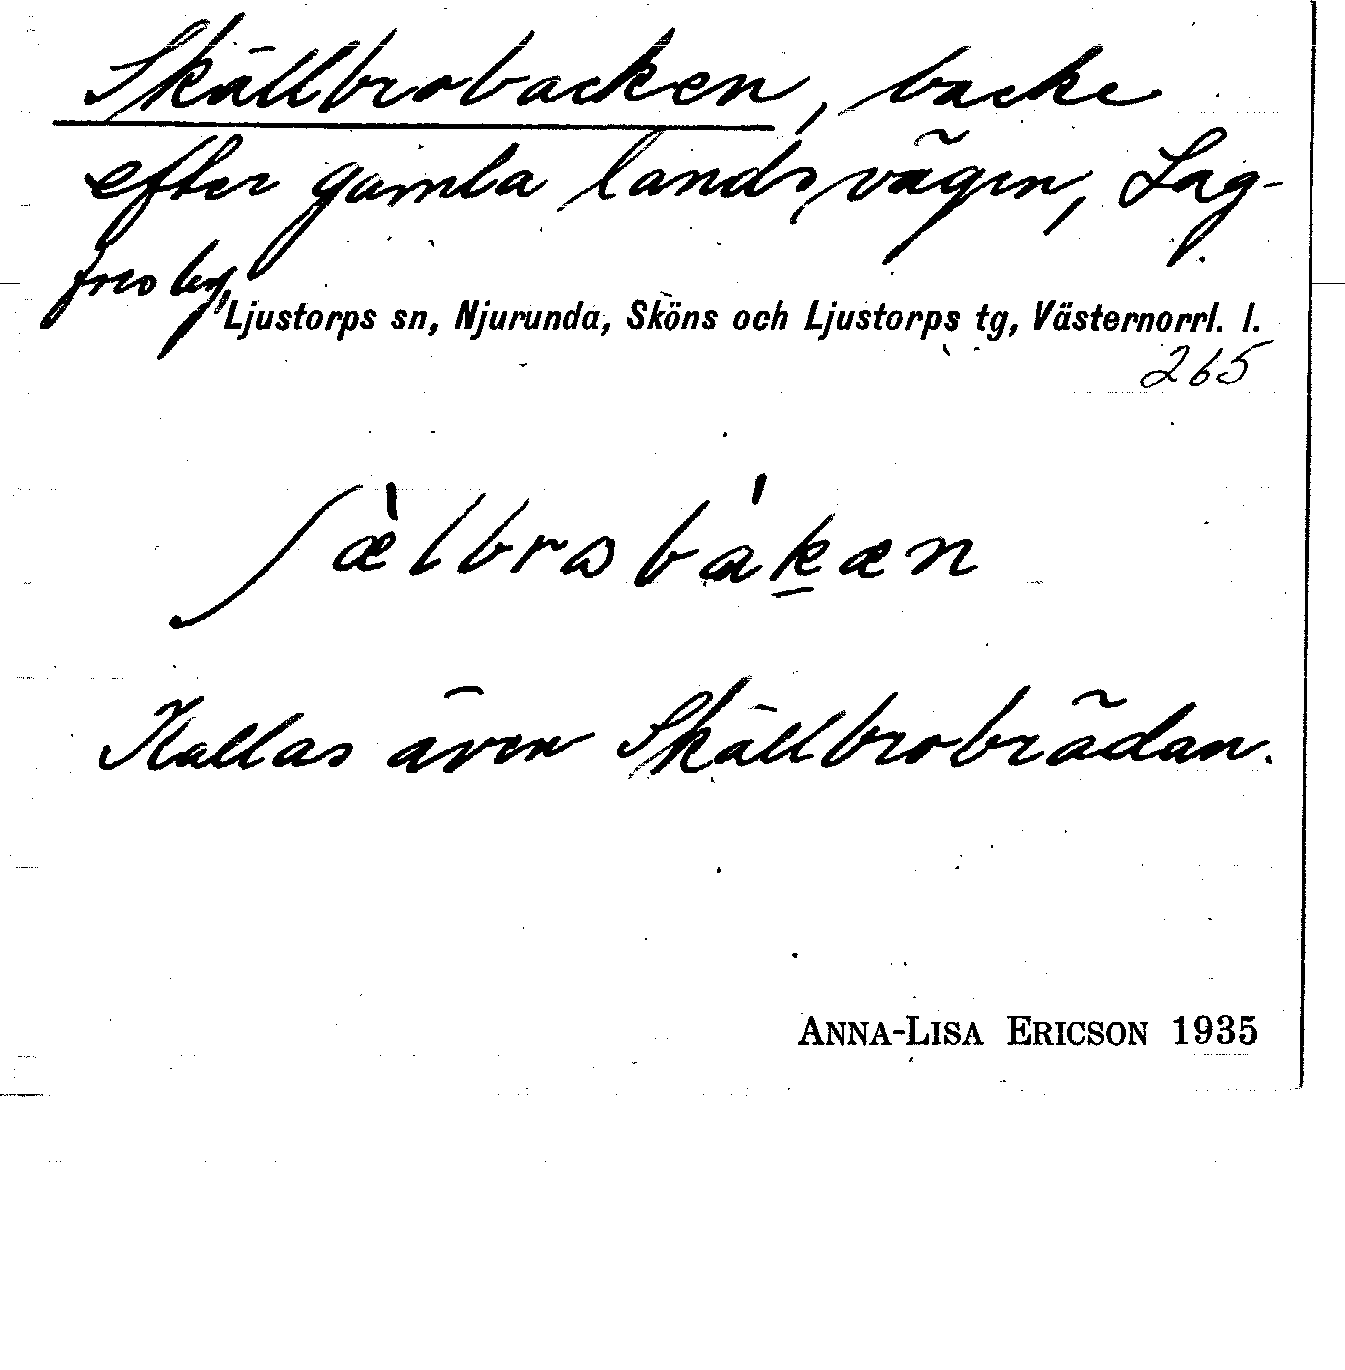 Skällbrobacken, backe
efter gamla landsvägen, Lag-
fresby,
Ljustorps sn, Njurunda, Sköns och Ljustorps tg, Västernorrl. l.
265
ʃæ̀lbrɷbák̲æn
Kallas även Skällbrobrädan.
ANNA-LISA ERICSON 1935